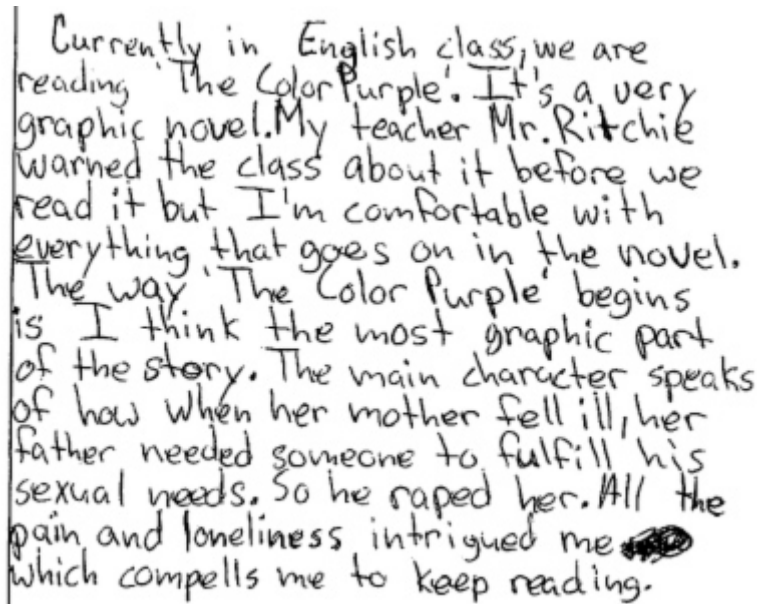 Currently in English class, we are
reading 'The Color Purple'. It's a very
graphic novel. My teacher Mr. Ritchie
warned the class about it before we
read it but I'm comfortable with
everything that goes on in the novel.
The way 'The Color Purple' begins
is I think the most graphic part
of the story. The main character speaks
of how when her mother fell ill, her
father needed someone to fulfill his
sexual needs. So he raped her. All the
pain and loneliness intrigued me
which compells me to keep reading.